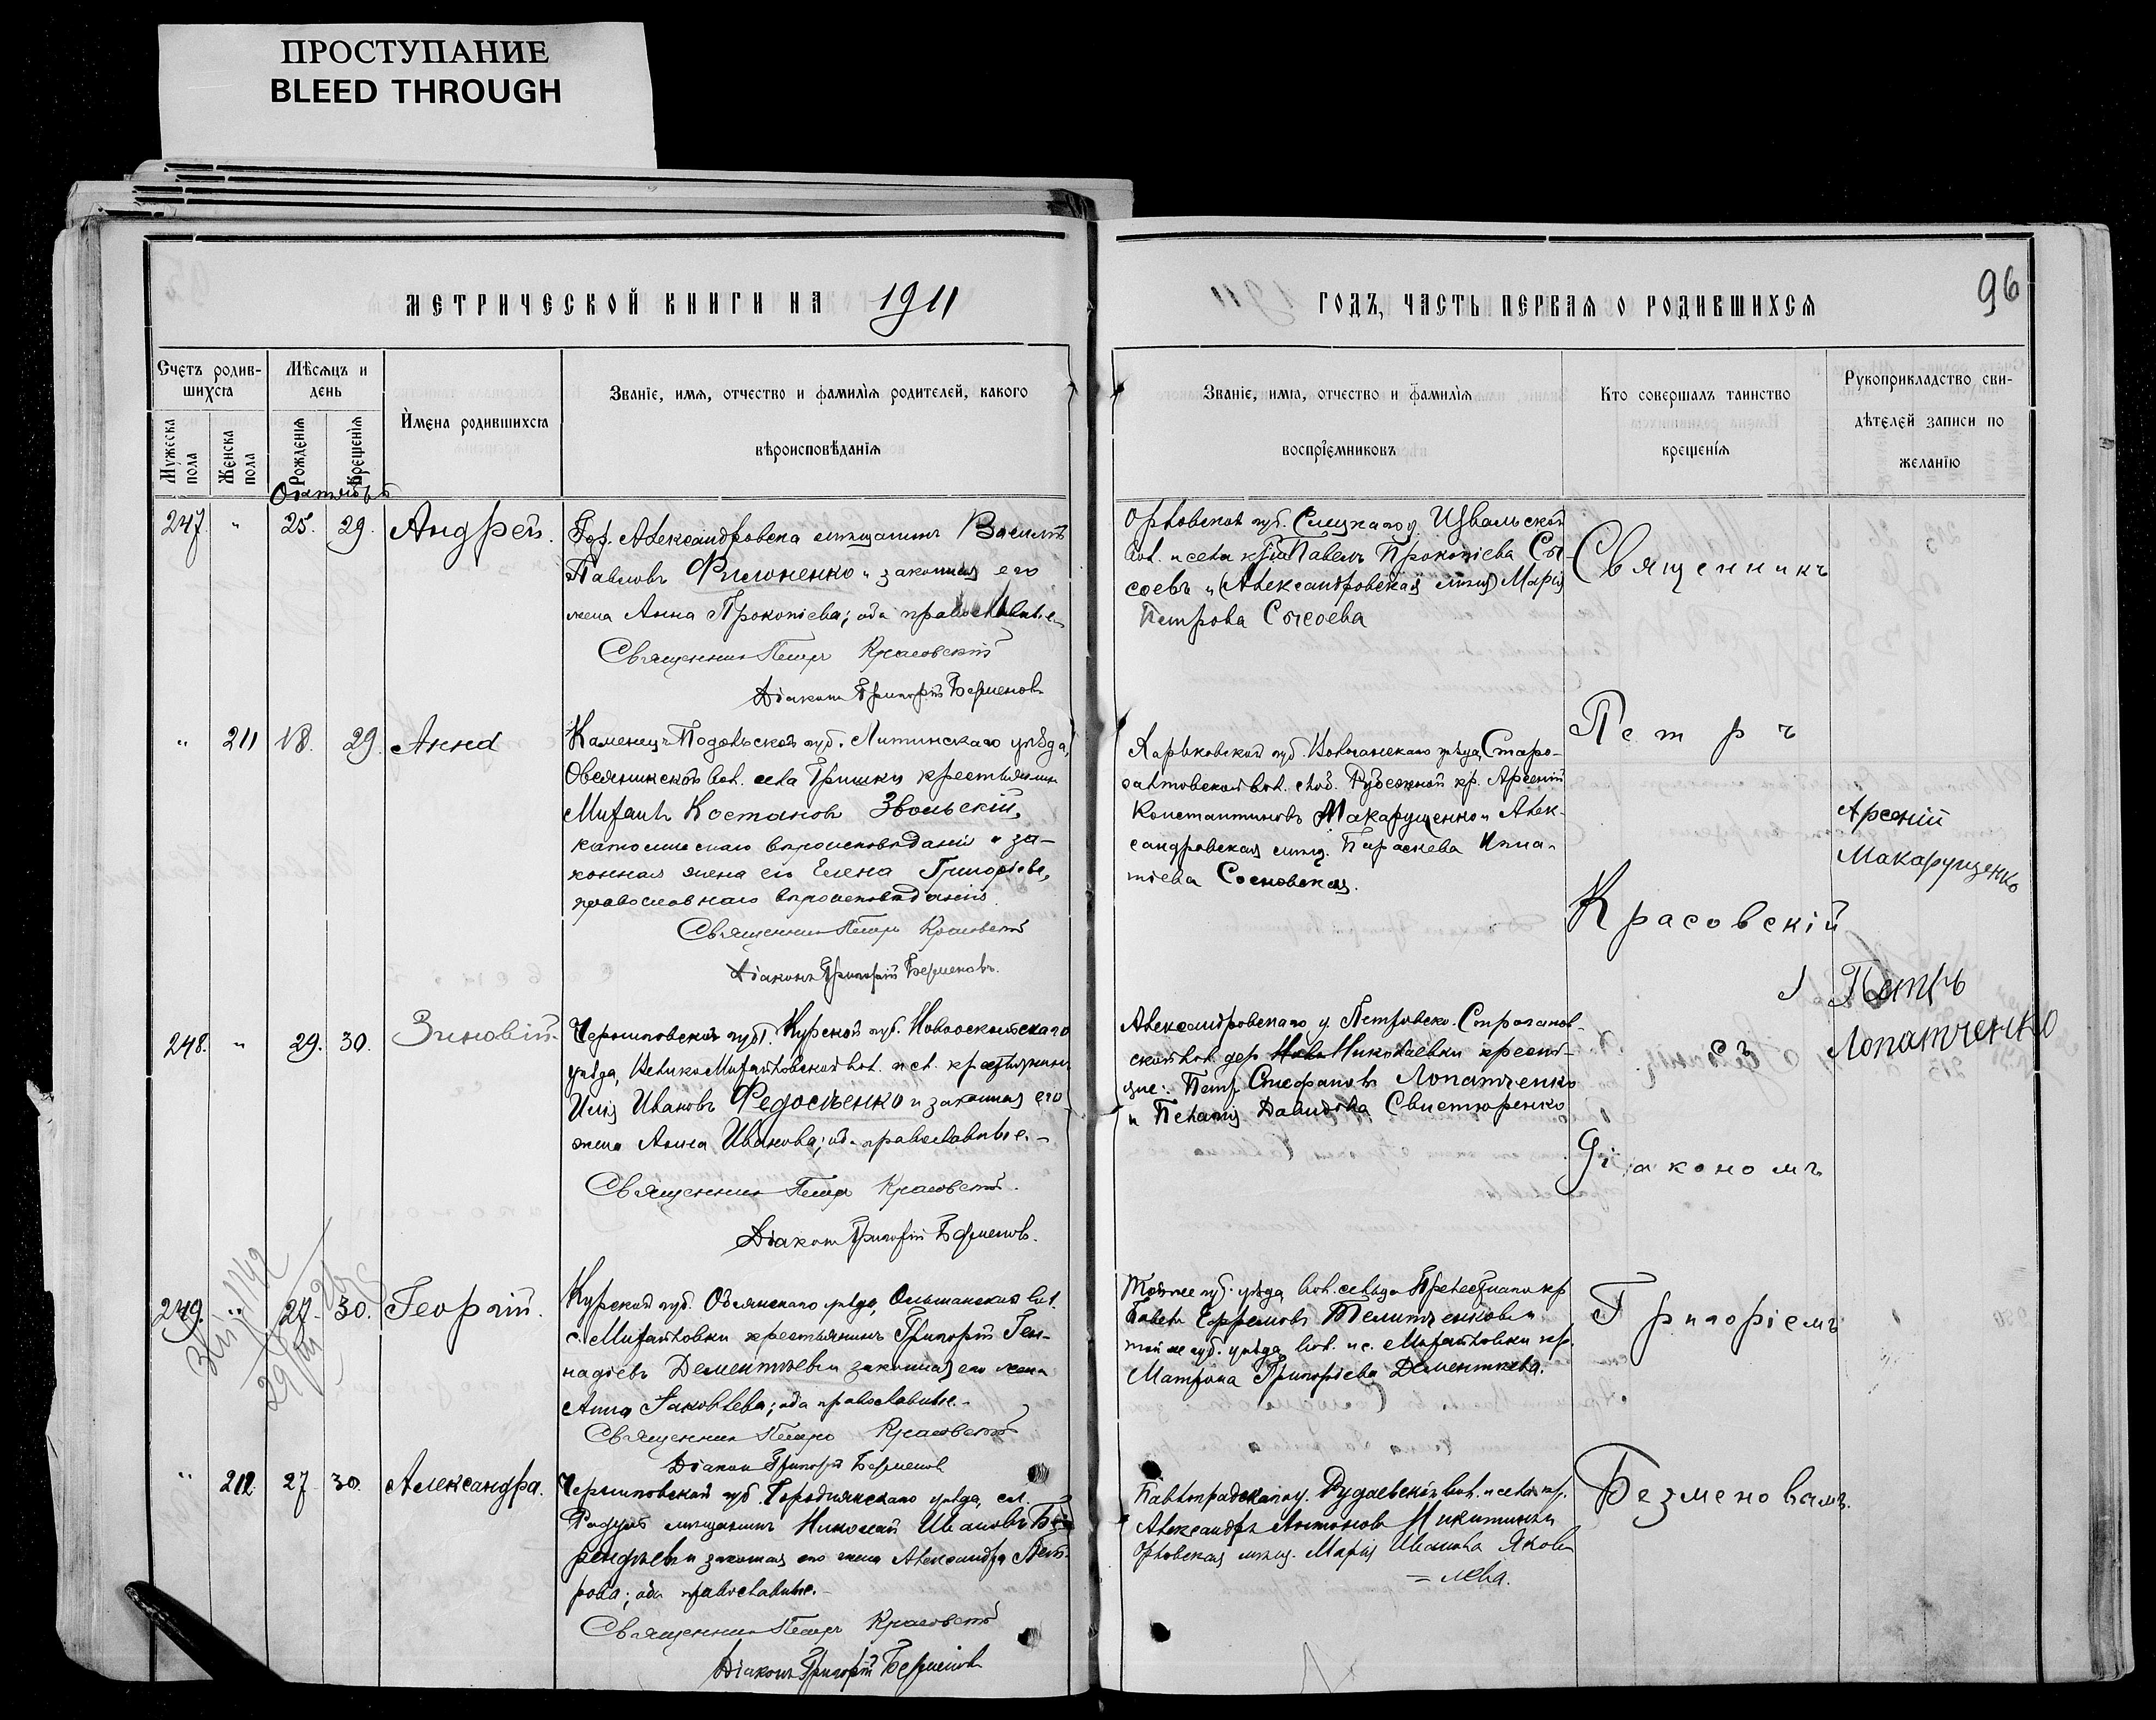 ПРОСТУПАНИЕ
BLEED THROUGH
МЕТРИЧЕСКОЙ КНИГИ НА 1911
Счетъ родив-
шихся
Мѣсяцъ и
день
Имена родившихся
Званіе, имя, отчество и фамилія родителей, какого
вѣроисповѣданія
Мужеска
пола
Женска
пола
Рожденія
Крещенія
Октябрь
247. " 25. 29. Андрей.
Гор. Александровска мѣщанинъ Василій
Павловъ Филоненко и законная его
жена Анна Прокопіева; оба православные
Священникъ Петръ Красовскій
Діаконъ Григорій Безменовъ
" 211 18. 29. Анна
Каменец-Подольской губ. Литинскаго уѣзда,
вол. села Гришки крестьянинъ
Михаилъ Звольскій,
католическаго вѣроисповѣданія и за-
конная жена его Елена Григоріева,
православнаго вѣроисповѣданія.
Священникъ Петръ Красовскій
Діаконъ Григорій Безменовъ.
248. " 29. 30. Зиновій.
Курской губ. Новооскольскаго
уѣзда, Велико-Михайловской вол. и сл. крестьянинъ
Илія Ивановъ Федосѣенко и законная его
жена Анна Иванова; оба православные.
Священникъ Петръ Красовскій.
Діаконъ Григорій Безменовъ.
249. " 27. 30. Георгій.
Курской губ. Обоянскаго уѣзда, Ольшанской вол.
с. Михайловки крестьянинъ Григорій Ген-
надіевъ Дементьевъ и законная его жена
Анна Іаковлева; оба православные.
Священникъ Петръ Красовскій
Діаконъ Григорій Безменовъ
" 212. 27 30. Александра.
Черниговской губ. Городнянскаго уѣзда, сл.
Радуль мѣщанинъ Николай Ивановъ
и законная его жена Александра Пет-
рова; оба православные.
Священникъ Петръ Красовскій
Діаконъ Григорій Безменовъ
ГОДЪ, ЧАСТЬ ПЕРВАЯ О РОДИВШИХСЯ
96
Званіе, имя, отчество и фамилія
воспріемниковъ
Кто совершалъ таинство
крещенія
Рукоприкладство сви-
дѣтелей записи по
желанію
Орловской губ.
вол. и села Павелъ Прокопіевъ Сы-
соевъ и Александровская мѣщ. Марія
Петрова Сысоева
Харьковской губ. Волчанскаго уѣзда, Старо-
салтовской вол. слоб. Рубежной кр. Арсеній
Константиновъ Макарущенко и Алек-
сандровская мѣщ. Параскева Игна-
тіева Сосновская.
Александровскаго у. Петровско.
вол. дер. Николаевки кресть-
яне: Петръ Стефановъ Лопатченко
и Пелагія Давидова
Той же губ. уѣзда вол. кр.
Павелъ Ефремовъ и
той же губ. уѣзда вол. и с. Михайловки кр.
Матрона Григоріева Дементьева.
Павлоградскаго у. вол. и села кр.
Александръ Антоновъ Никитинъ и
Орловская мѣщ. Марія Иванова Яков
= лева.
Священникъ
Петръ
Красовскій
съ
Діакономъ
Григоріемъ
Безменовымъ.
Арсеній
Макарущенко
Петръ
Лопатченко